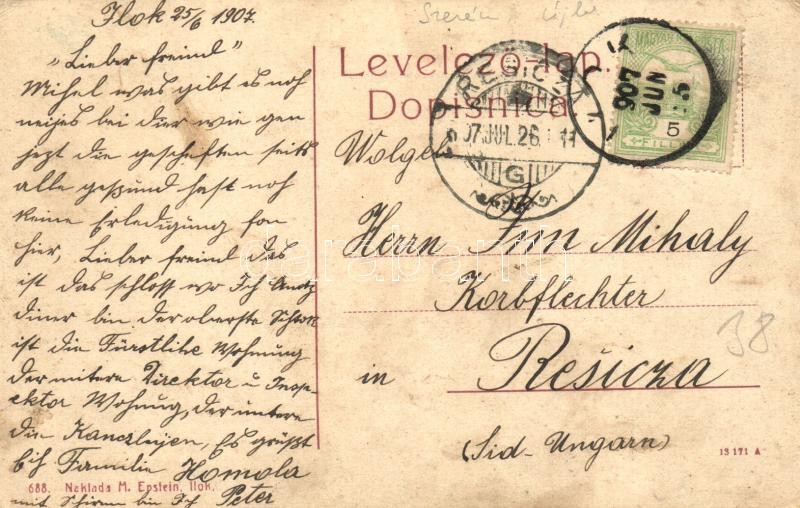 Ilok 25/6 1907.
"Lieber freind"
Mihel was gibt es noh
neijes bei dier wie gen
jezt die gescheften seits
alle gesund hast noh
keine Erledigung fon
hier, Lieber freind das
ist das schloss wo Ich
diner bin der oberste
ist die Fürstlihe Wohnung
der mitere Direktor u Insp-
ektor Wohnung, der untere
die Kanzleijen, Es grüßt
Familie Homola
mit Ich Peter
688. Naklada M. Epstein, Ilok.
Szerém, Újlak
Levelező-lap.
Dopisnica.
RESICZA
907 JUL. 26. 11
G
907
JUN
25
MAGYAR
5
FILLÉR
Herrn Jun Mihaly
Korbflechter
in Rešicza
(Sid-Ungarn)
38.
13 171 A
darabanth